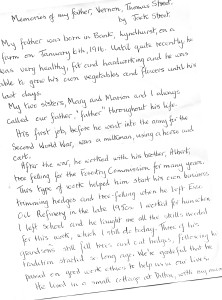 Memories of my father, Vernon, Thomas Street.
by Jack Street
My father was born in Bank, Lyndhurst, on a
farm on January 6th, 1916. Until quite recently he
was very healthy, fit and hardworking and he was
able to grow his own vegetables and flowers until his
last days.
My two sisters, Mary and Marion and I always
called our father, "father" throughout his life.
His first job, before he went into the army for the
Second World War, was a milkman, using a horse and
cart.
After the war, he worked with his brother, Albert,
tree felling for the Forestry Commission for many years.
This type of work helped him start his own business
trimming hedges and tree felling when he left Esso
Oil Refinery in the late 1950s. I worked for him when
I left school and he taught me all the skills needed
for this work, which I still do today. Three of his
grandsons still fell trees and cut hedges, following the
tradition started so long ago. We're grateful that he
passed on good work ethics to help us in our lives.
He lived in a small cottage at Dibden, with my mum